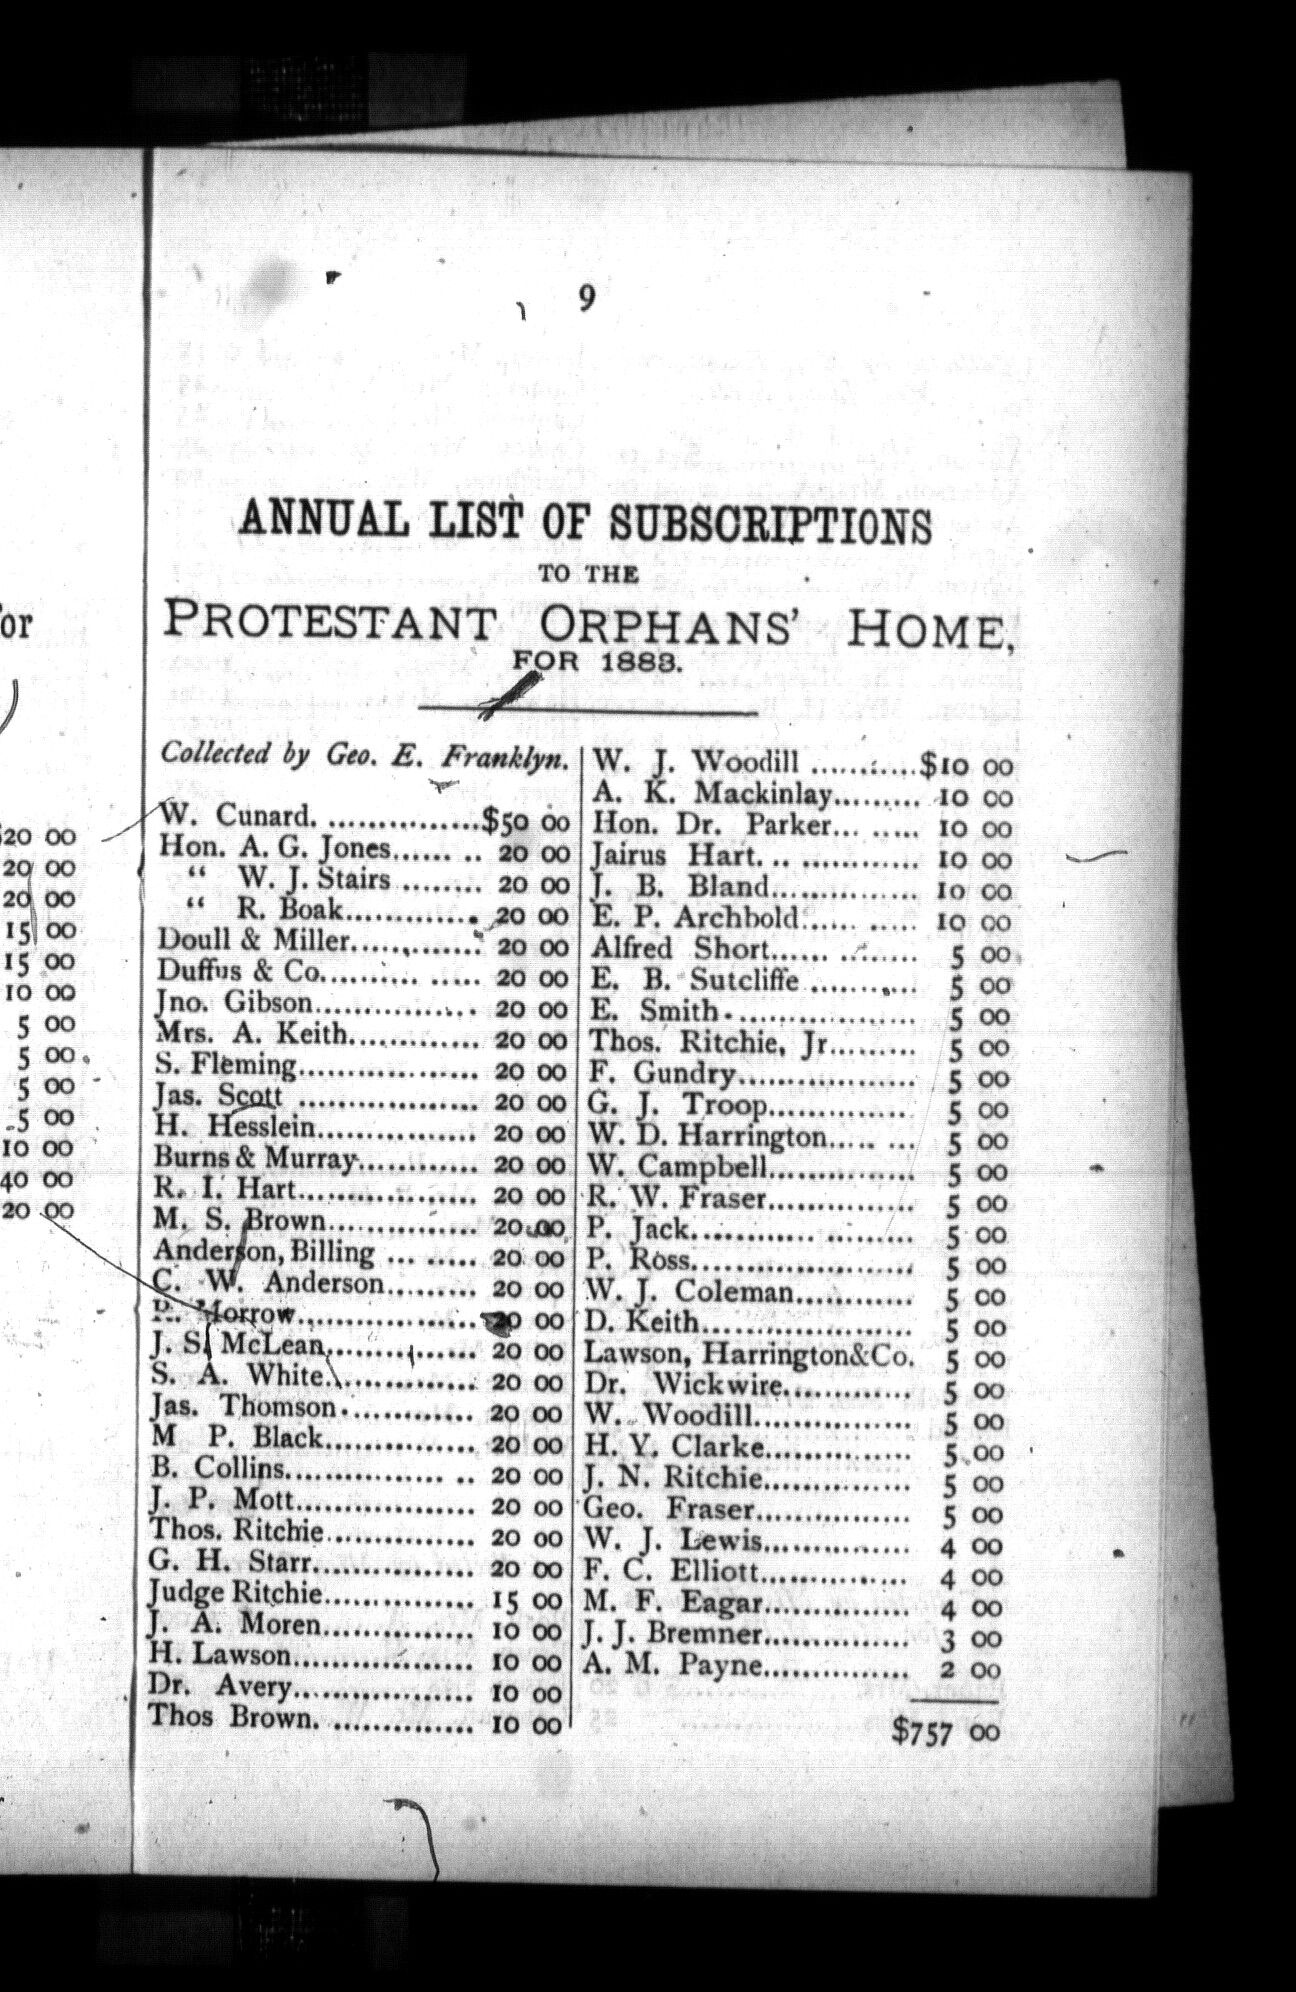 9
ANNUAL LIST OF SUBSCRIPTIONS
TO THE
PROTESTANT ORPHANS' HOME,
FOR 1883.
Collected by Geo. E. Franklyn.
W. Cunard. ...............$50 00
Hon. A. G. Jones...... .. 20 00
“ W. J. Stairs ........ 20 00
“ R. Boak............. 20 00
Doull & Miller............. 20 00
Duffus & Co.......... ..... 20 00
Jno. Gibson................ 20 00
Mrs. A. Keith............. 20 00
S. Fleming.................. 20 00
Jas. Scott .................. 20 00
H. Hesslein................ 20 00
Burns & Murray............ 20 00
R. I. Hart.................. 20 00
M. S. Brown............... 20 00
Anderson, Billing ... ..... 20 00
C. W. Anderson......... 20 00
R. Morrow.................. 20 00
J. S. McLean............... 20 00
S. A. White............... 20 00
Jas. Thomson............. 20 00
M P. Black............... 20 00
B. Collins................ .. 20 00
J. P. Mott.................. 20 00
Thos. Ritchie............... 20 00
G. H. Starr................ 20 00
Judge Ritchie............... 15 00
J. A. Moren............... 10 00
H. Lawson.................. 10 00
Dr. Avery.................. 10 00
Thos Brown. .............. 10 00
W. J. Woodill ...........$10 00
A. K. Mackinlay......... 10 00
Hon. Dr. Parker... ..... 10 00
Jairus Hart. .. ............ 10 00
J. B. Bland............... 10 00
E. P. Archbold...... ..... 10 00
Alfred Short...... ........ 5 00
E. B. Sutcliffe ........... 5 00
E. Smith.................. 5 00
Thos. Ritchie, Jr......... 5 00
F. Gundry.................. 5 00
G. J. Troop.............. 5 00
W. D. Harrington..... ... 5 00
W. Campbell............... 5 00
R. W. Fraser............... 5 00
P. Jack............ ......... 5 00
P. Ross...................... 5 00
W. J. Coleman............ 5 00
D. Keith..................... 5 00
Lawson, Harrington&Co. 5 00
Dr. Wickwire............. 5 00
W. Woodill................ 5 00
H. Y. Clarke............... 5 00
J. N. Ritchie............... 5 00
Geo. Fraser................ 5 00
W. J. Lewis............... 4 00
F. C. Elliott............... 4 00
M. F. Eagar............... 4 00
J. J. Bremner............... 3 00
A. M. Payne............... 2 00
$757 00
or
$20 00
20 00
20 00
15 00
15 00
10 00
5 00
5 00
5 00
5 00
10 00
40 00
20 00